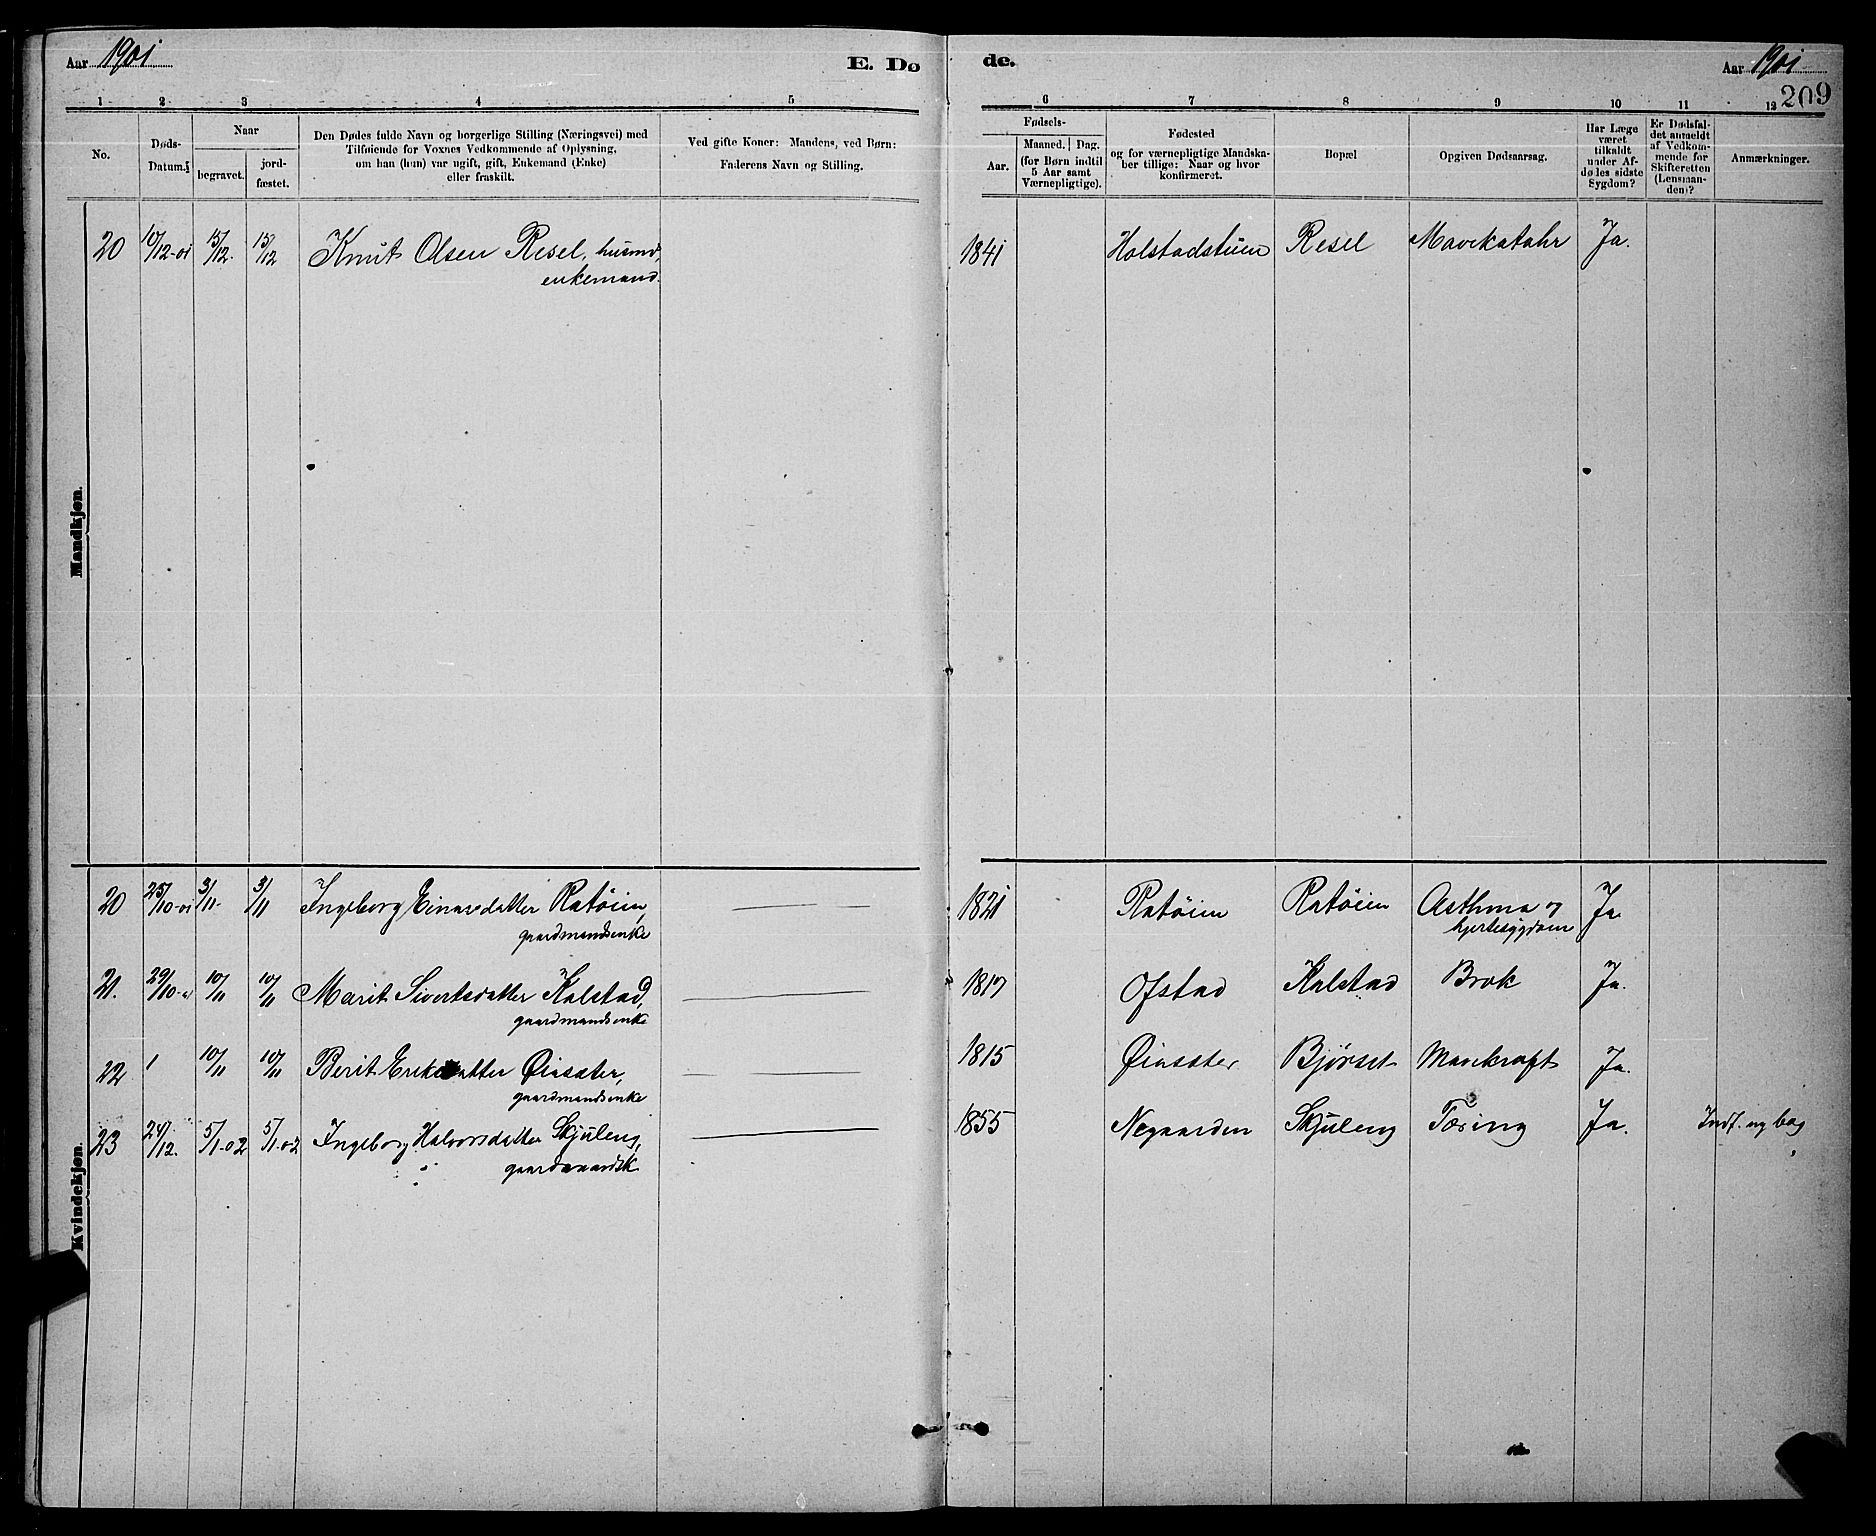 Aar 1901 E. Dø
de. Aar 1901
209
1 2 3 4 5
6 7 8 9 10 11 12
No.
Døds-
Datum.
Naar
begravet.
jord-
fæstet.
Den Dødes fulde Navn og borgerlige Stilling (Næringsvei) med
Tilføiende for Voxnes Vedkommende af Oplysning,
om han (hun) var ugift, gift, Enkemand (Enke)
eller fraskilt.
Ved gifte Koner: Mandens, ved Børn:
Faderens Navn og Stilling.
Fødsels-
Aar.
Maaned. Dag.
(for Børn indtil
5 Aar samt
Værnepligtige).
Fødested
og for værnepligtige Mandska-
ber tillige: Naar og hvor
konfirmeret.
Bopæl
Opgiven Dødsaarsag.
Har Læge
været
tilkaldt
under Af-
dødes sidste
Sygdom?
Er Dødsfal-
det anmeldt
af Vedkom-
mende for
Skifteretten
(Lensman-
den)?
Anmærkninger.
Mandkjøn.
20 10/12-01 15/12. 15/12 Knut Olsen Resel, husmd, 1841 Holstadstuen Resel Mavekatahr Ja.
enkemand.
Kvindekjøn.
20 25/10-01 3/11. 3/11 Ingeborg Einarsdatter Ratøien, 1821 Ratøien Ratøien Asthma og Ja
gaardmandsenke hjertesygdom
21. 29/10-01 10/11 10/11 Marit Sivertsdatter Kalstad, 1817 Ofstad Kalstad Brok Ja.
gaardmandsenke
22 1 10/11 10/11 Berit Eriksdatter Øiasæter, 1815 Øiasæter Bjørset Mavekræft Ja.
gaardmandsenke
23 24/12. 5/1-02 5/1-02 Ingeborg Halvorsdatter Skjuleng, 1855 Negaarden Skjuleng Tæring Ja. Indf. ny bog
gaardmandsk.